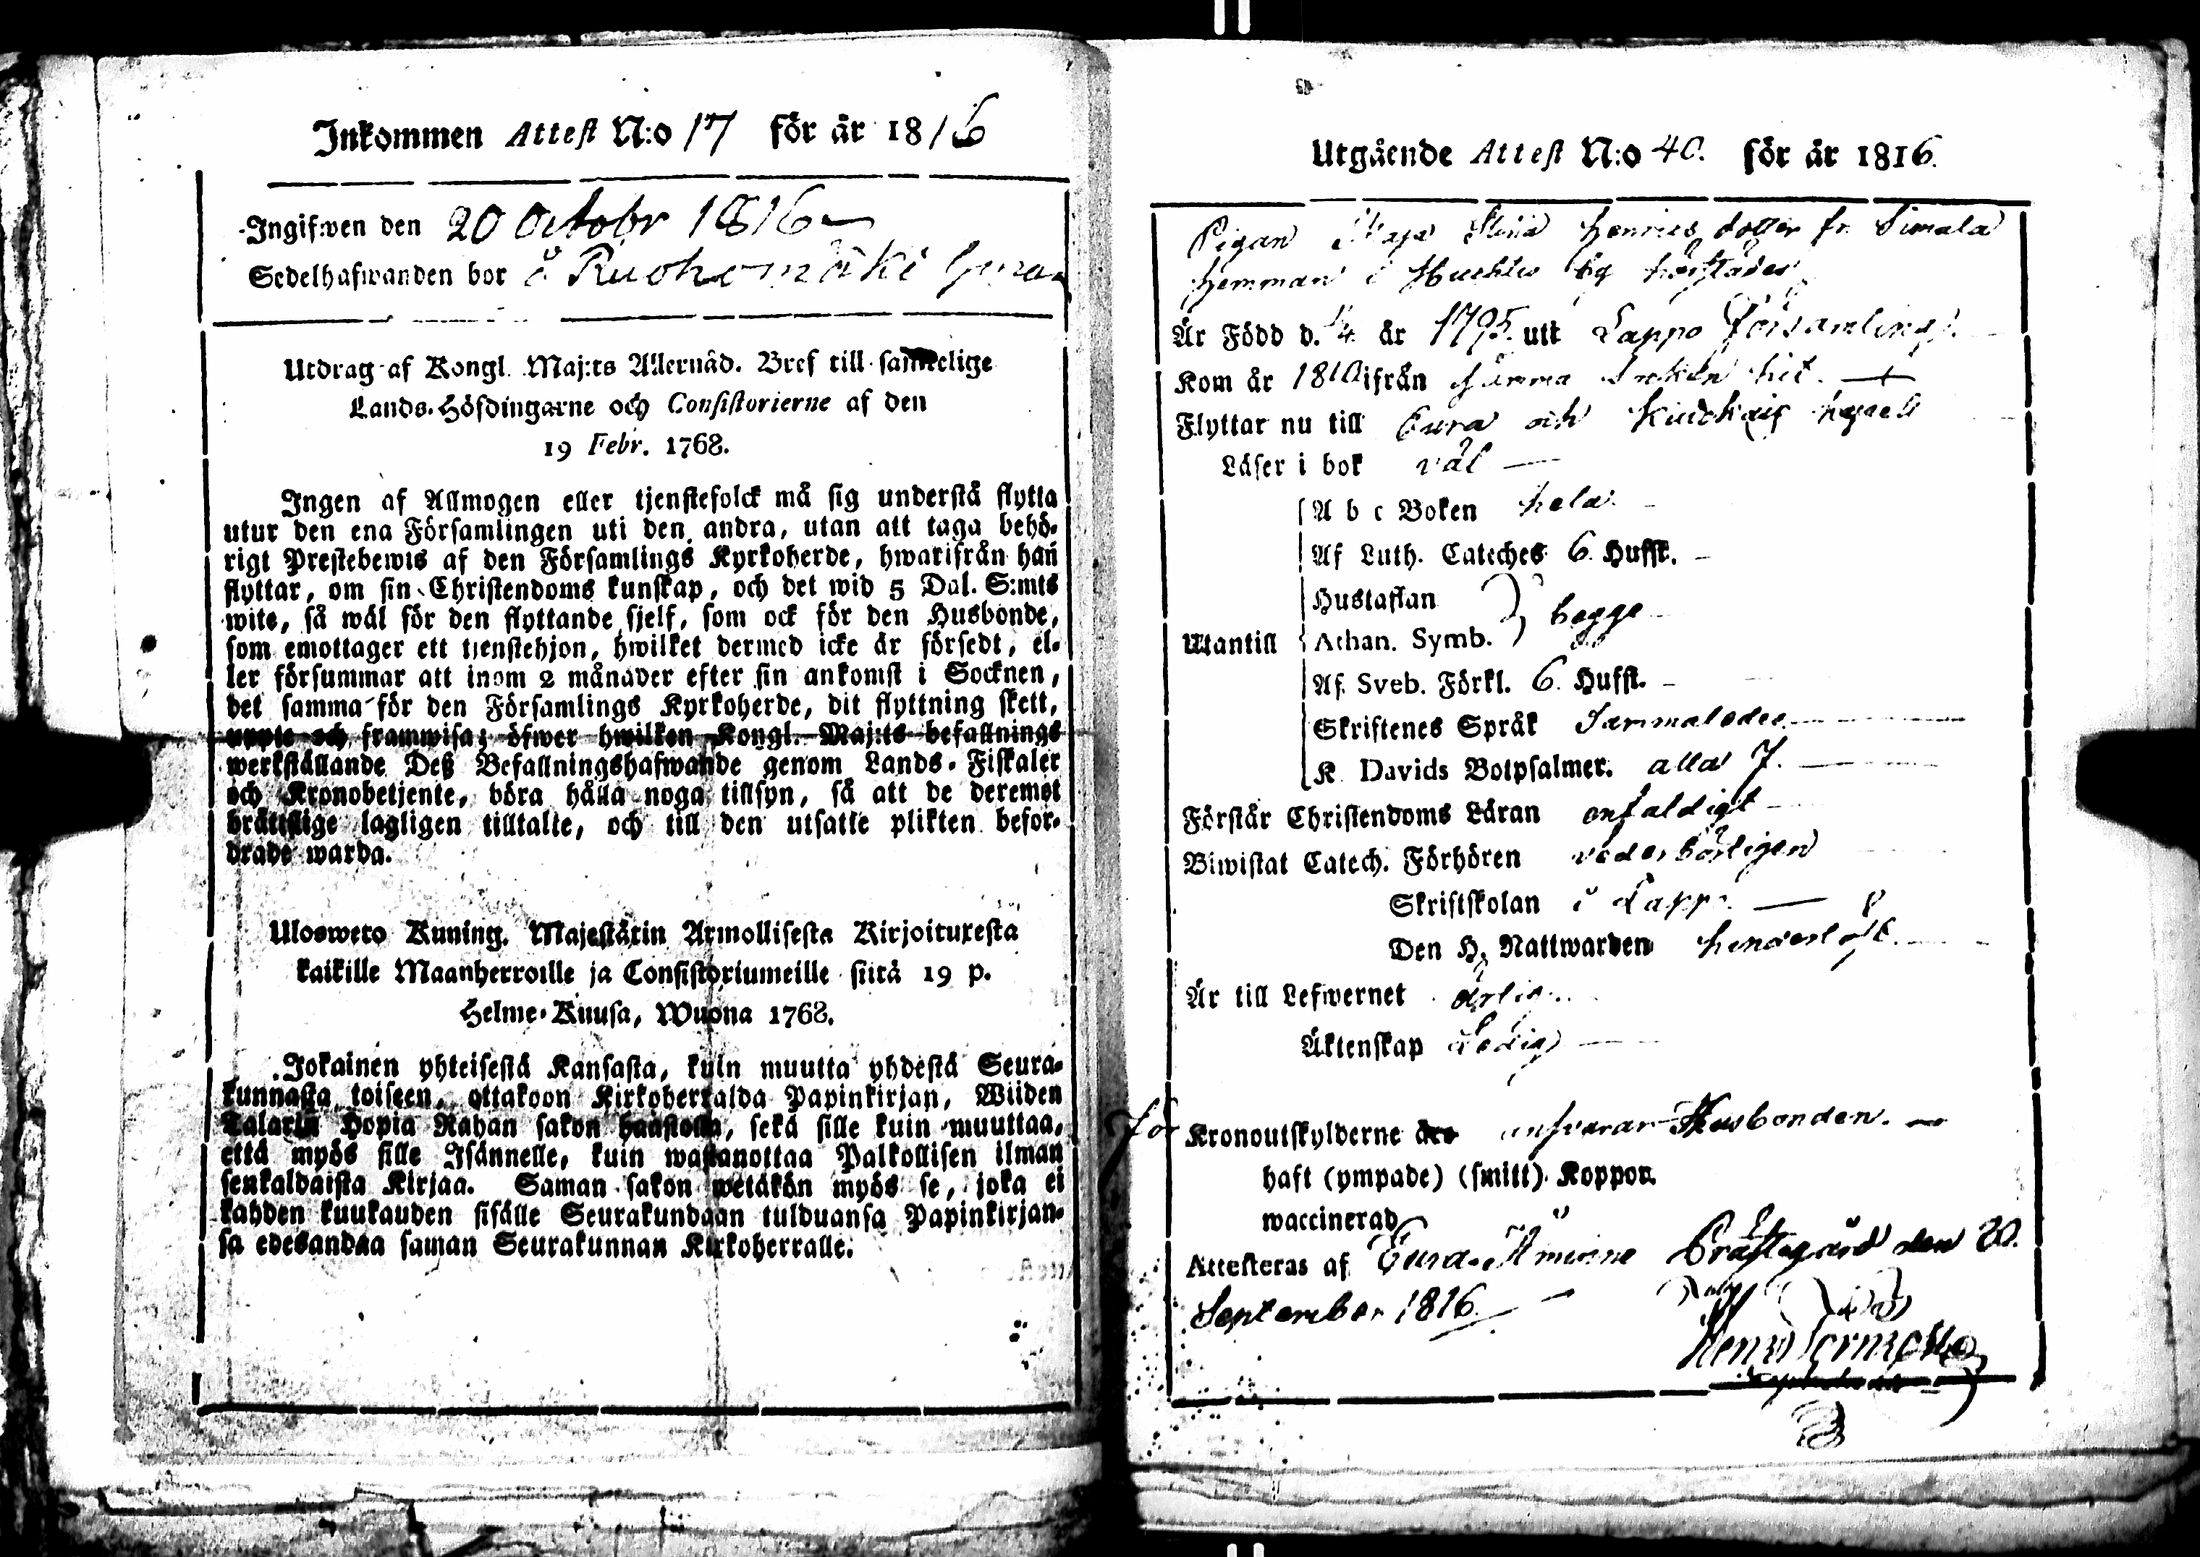 Inkommen Attest N:o 17 för år 1816
Ingifwen den 20 Octobr 1816
Sedelhafwanden bor å Ruohomäki
Utdrag af Kongl. Maj:ts Allernåd. Bref till samtelige
Lands-Höfdingarne och Consistorierne af den
19 Febr. 1768.
Ingen af Allmogen eller tjenstefolck må sig understå flytta
utur den ena Församlingen uti den andra, utan att taga behö-
rigt Prestebewis af den Församlings Kyrkoherde, hwarifrån han
flyttar, om sin Christendoms kunskap, och det wid 5 Dal. S:mts
wite, så wäl för den flyttande sjelf, som ock för den Husbonde,
som emottager ett tjenstehjon, hwilket dermed icke är försedt, el-
ler försummar att inom 2 månader efter sin ankomst i Socknen,
det samma för den Församlings Kyrkoherde, dit flyttning skett,
uppte och framwisa; öfwer hwilken Kongl. Maj:ts befallnings
werkställande Deß Befallningshafwande genom Lands-Fiskaler
och Kronobetjente, böra hålla noga tillsyn, så att de deremot
brättslige lagligen tilltalte, och till den utsatte plikten befor-
drade warda.
Ulosweto Kuning. Majestätin Armollisesta Kirjoituxesta
kaikille Maanherroille ja Consistoriumeille siitä 19 p.
Helme-Kuusa, Wuona 1768.
Jokainen yhteisestä Kansasta, kuin muutta yhdestä Seura-
kunnasta toiseen, ottakoon Kirkoherralda Papinkirjan, Wiiden
Talarin Hopia Rahan sakon haastolla, sekä sille kuin muuttaa,
että myös sille Isännelle, kuin wastanottaa Palkollisen ilman
senkaldaista Kirjaa. Saman sakon wetäkön myös se, joka ei
kahden kuukauden sisälle Seurakundaan tulduansa Papinkirjan-
sa edesandaa saman Seurakunnan Kirkoherralle.
Utgående Attest N:o 40. för år 1816.
Pigan Maja Stina Henricsdotter fr. Simala
hemman i by
Är Född d. 4. år 1795. utt Lappo Församling.
Kom år 1810 ifrån samma Sokn hit.
Flyttar nu till Eura och
Läser i bok väl
Utantill
A b c Boken hela.
Af Luth. Cateches 6. Huffst.
Hustaflan
Athan. Symb. } begge
Af. Sveb. Förkl. 6. Huffst.
Skriftenes Språk Sammaledes
K. Davids Botpsalmer. alla 7.
Förstår Christendoms Läran enfaldigt
Biwistat Catech. Förhören vederbörligen
Skriftskolan i Lappo.
Den H. Nattwarden
Är till Lefwernet ärlig.
Äktenskap Ledig
För Kronoutskylderne ansvarar Husbonden.
haft (ympade) (smitt). Koppor.
waccinerad
Attesteras af Eura Åminne Prästegård den 20.
September 1816.